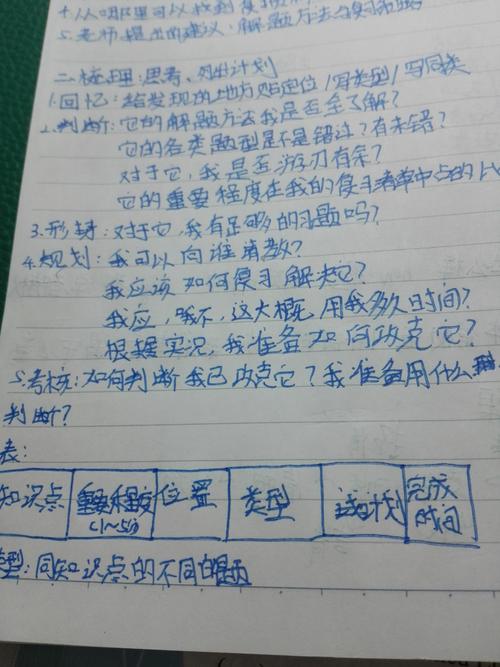 4.从哪里可以找到
5.老师提出的建议,解题方法与复习
二、梳理:思考、列出计划
1.回忆:给发现的地方贴定位/写类型/写同类
2.判断:它的解题方法我是否全了解?
它的各类题型是不是错过?有未错?
对于它,我是否游刃有余?
它的重要程度在我的复习清单中占的
3.形势:对于它,我有足够的习题吗?
4.规划:我可以向谁请教?
我应该如何复习解决它?
我应,哦不,这大概用我多久时间?
根据实况,我准备如何攻克它?
5.考核:如何判断我已攻克它?我准备用什么
判断?
表:
知识点 重要程度 位置 类型 计划 完成
(1~5) 时间
型:同知识点的不同题